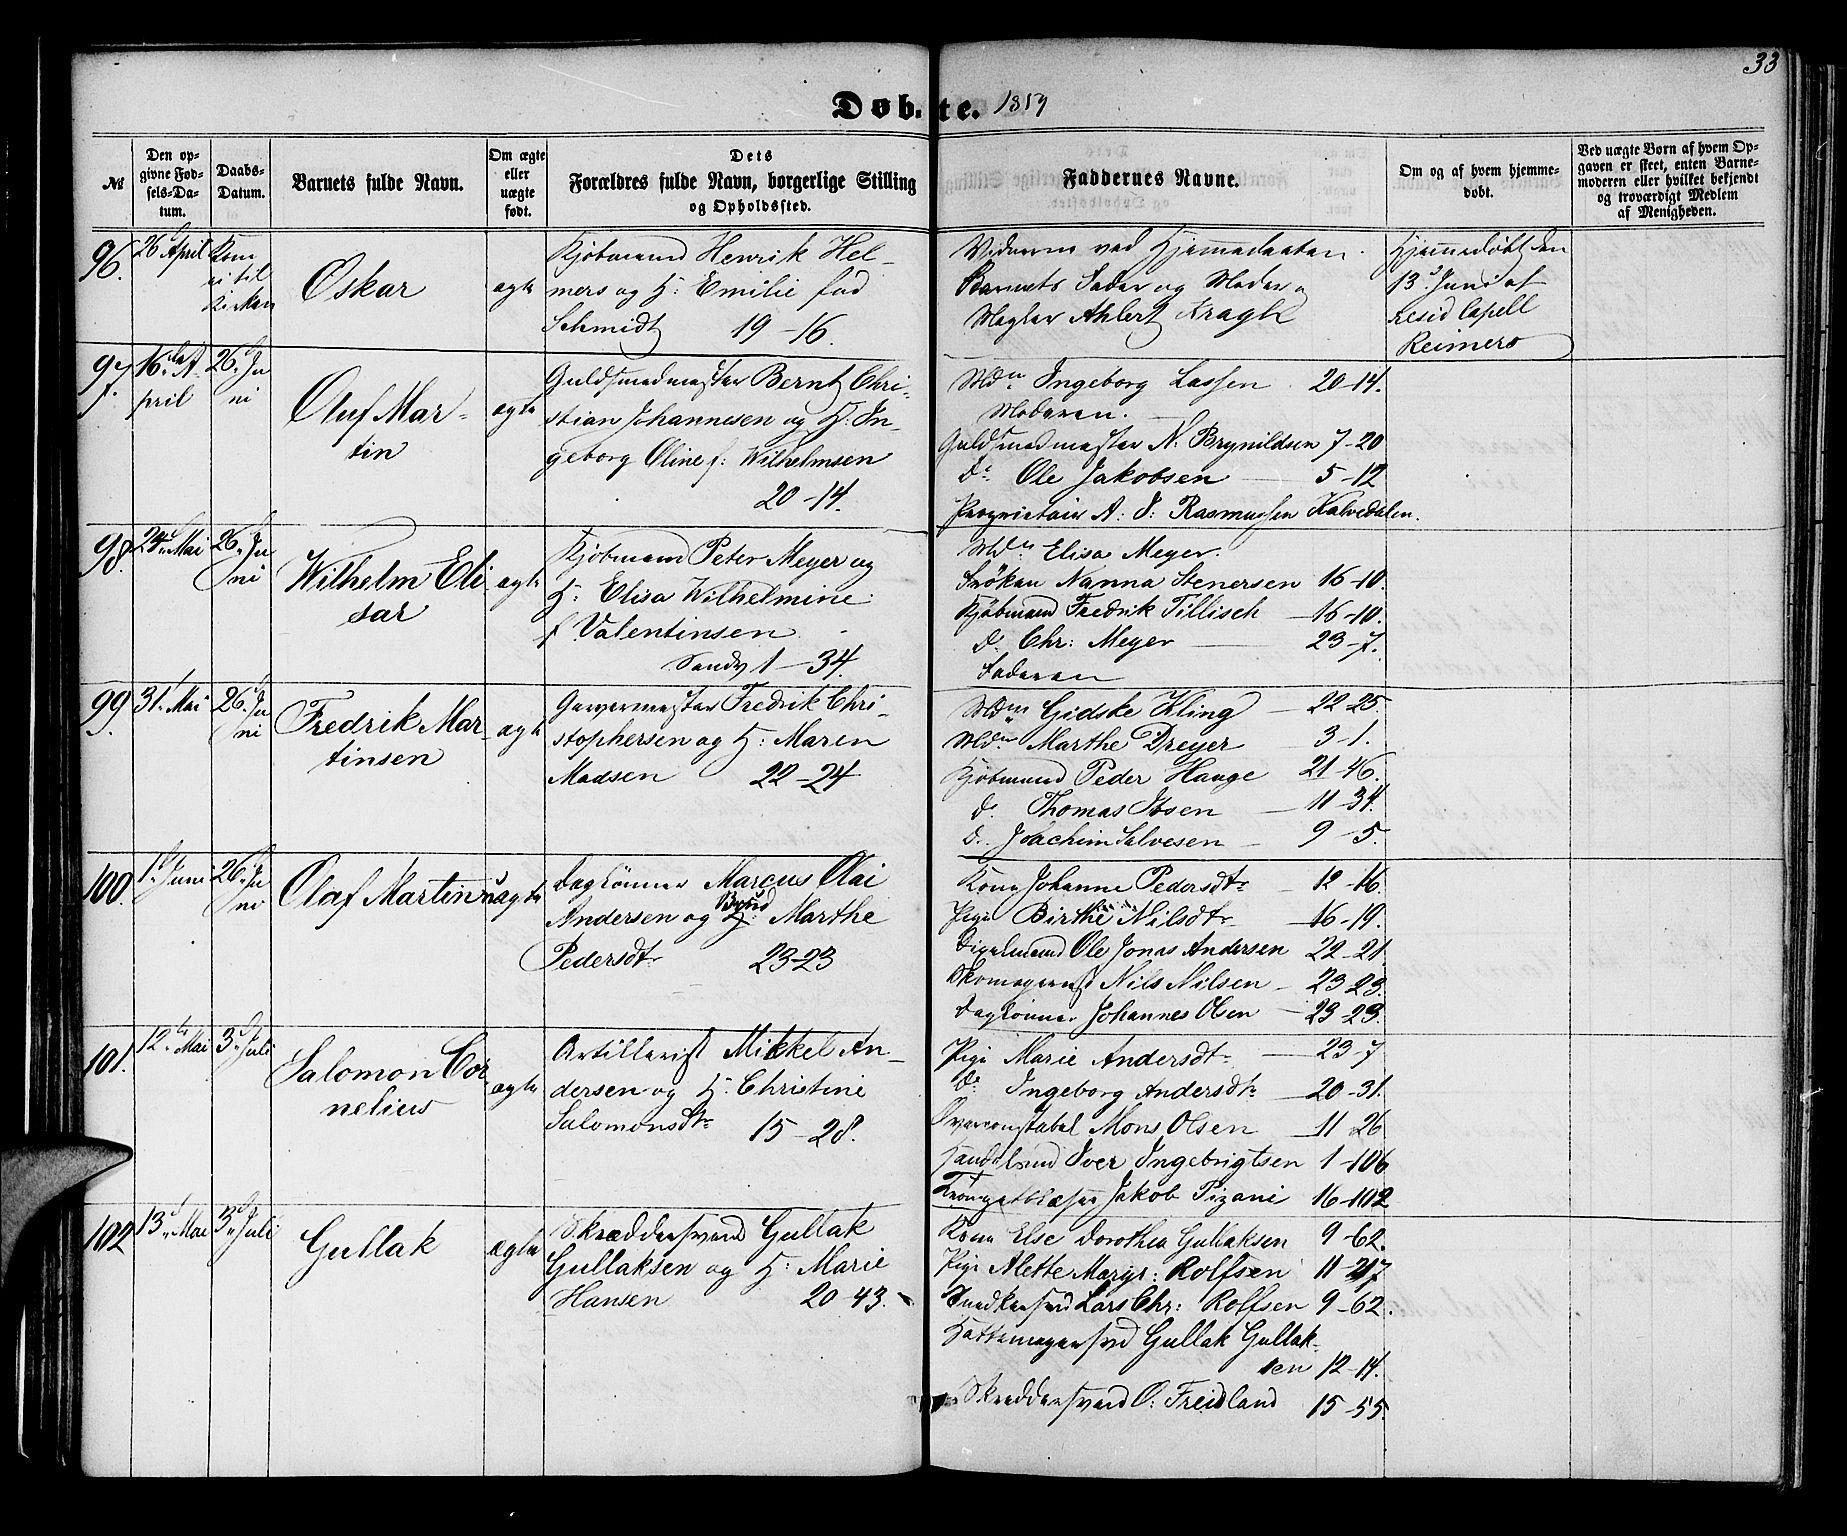 33
Døbte. 1859
№
Den op-
givne Fød-
sels-Da-
tum.
Daabs-
Datum.
Barnets fulde Navn.
Om ægte
eller
uægte
født.
Dets
Forældres fulde Navn, borgerlige Stilling
og Opholdssted.
Faddernes Navne.
Om og af hvem hjemme-
døbt.
Ved uægte Børn af hvem Op-
gaven er skeet, enten Barne-
moderen eller hvilket bekjendt
og troværdigt Medlem
af Menigheden.
96.
26 April
Kom
ei til
Kirken
Oskar
ægte
Kjøbmand Henrik Hel-
mers og H: Emilie fød
Schmidt 19-16.
Vidnerne ved Hjemmedaaben.
Barnets Fader og Moder og
Megler Ahlert Kragh
Hjemmedøbt den
13 Juni af
resid Capell
Reimers
97.
16 A-
pril
26 Ju
ni
Oluf Mar-
tin
ægte
Guldsmedmester Bernt Chri-
stian Johannesen og H: In-
geborg Oline f: Wilhelmsen
20-14.
Mdm Ingeborg Lassen 20-14.
Moderen.
Guldsmedmester N. Brynildsen 7-20
do Ole Jakobsen 5-12
Proprietair A: J: Rasmussen Kalvedalen.
98.
24 Mai
26 Ju
ni
Wilhelm Eli
sar
ægte
Kjøbmand Peter Meyer og
H: Elisa Wilhelmine
f Valentinsen
Sandv 1-34.
Mdm Elisa Meyer.
Frøken Nanna Stenersen 16-10.
Kjøbmand Fredrik Tillisch 16-10.
do Chr: Meyer 23-7.
Faderen
99.
31 Mai
26 Ju
ni
Fredrik Mar-
tinsen
ægte
Garvermester Fredrik Chri-
stophersen og H: Maren
Madsen 22-24
Mdm Gidske Kling 22-25
Mdm Marthe Dreyer 3-1.
Kjøbmand Peder Hauge 21-46.
do Thomas Ibsen 11-34.
do Joachim Salvesen 9-5.
100.
1 Juni
26 Ju
ni
Olaf Martin
uægte
Daglønner Marcus Olai
Andersen og Brud Marthe
Pedersdtr 23-23
Kone Johanne Pedersdtr 12-16.
Pige Birthe Nilsdtr 16-19.
Ole Jonas Andersen 22-21
Skomagersv Nils Nilsen 23-23.
Daglønner Johannes Olsen 23-23.
101.
12 Mai
3 Juli
Salomon Cor-
nelius
ægte
Artillerist Mikkel An-
dersen og H: Christine
Salomonsdtr 15-28.
Pige Marie Andersdtr 23-7
do Ingeborg Andersdtr 20-31.
Overconstabel Mons Olsen 11-26
Handelsmd Iver Ingebrigtsen 1-106
Trompetblæser Jakob Pizani 16-102
102
13 Mai
3 Juli
Gullak
ægte
Skræddersvend Gullak
Gullaksen og H: Marie
Hansen 20-43.
Kone Else Dorothea Gullaksen 9-62.
Pige Mette Margr: Rolfsen 11-27
Snedkersvd Lars Chr: Rolfsen 9-62.
Hattemagersvd Gullak Gullak-
sen 12-14.
Skræddersvend O: Freidland 15-55.